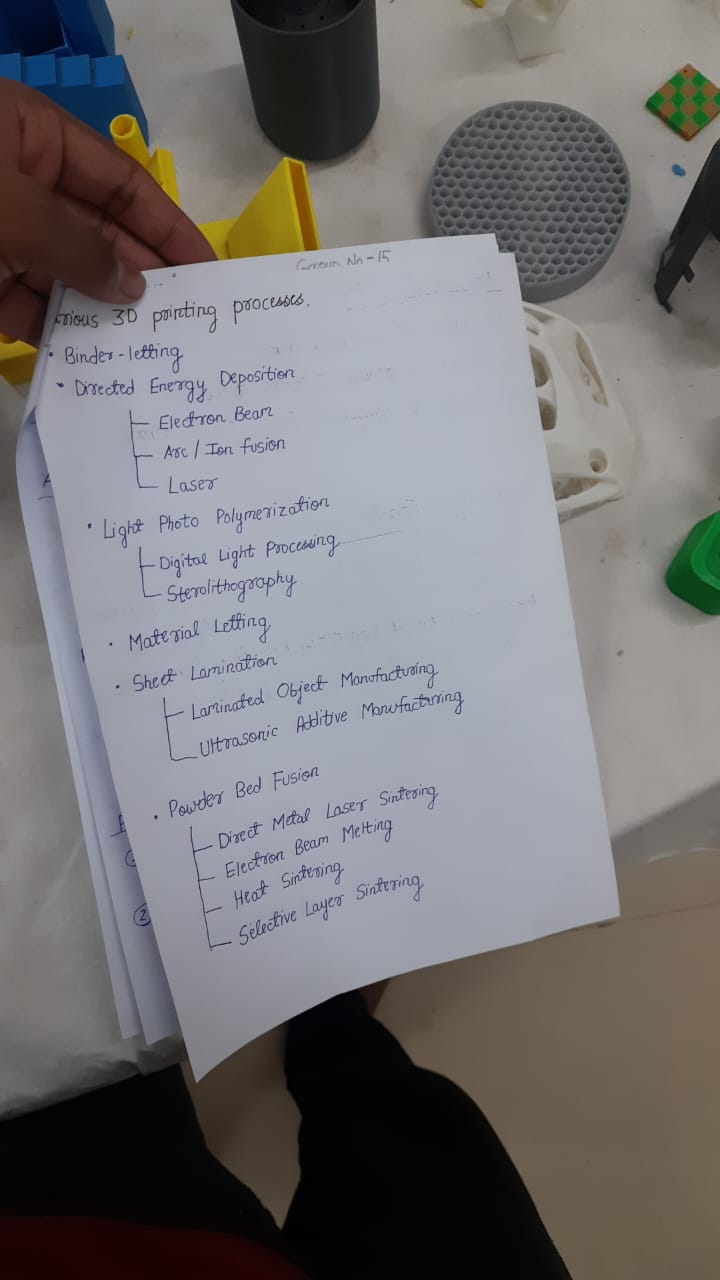 No-15
3D printing processes.
• Binder-letting
• Directed Energy Deposition
Electron Beam
Arc / Ion fusion
Laser
• Light Photo Polymerization
Digital Light Processing
Sterolithography
• Material Letting
• Sheet Lamination
Laminated Object Manufacturing
Ultrasonic Additive Manufacturing
• Powder Bed Fusion
Direct Metal Laser Sintering
Electron Beam Melting
Heat Sintering
Selective Layer Sintering
2